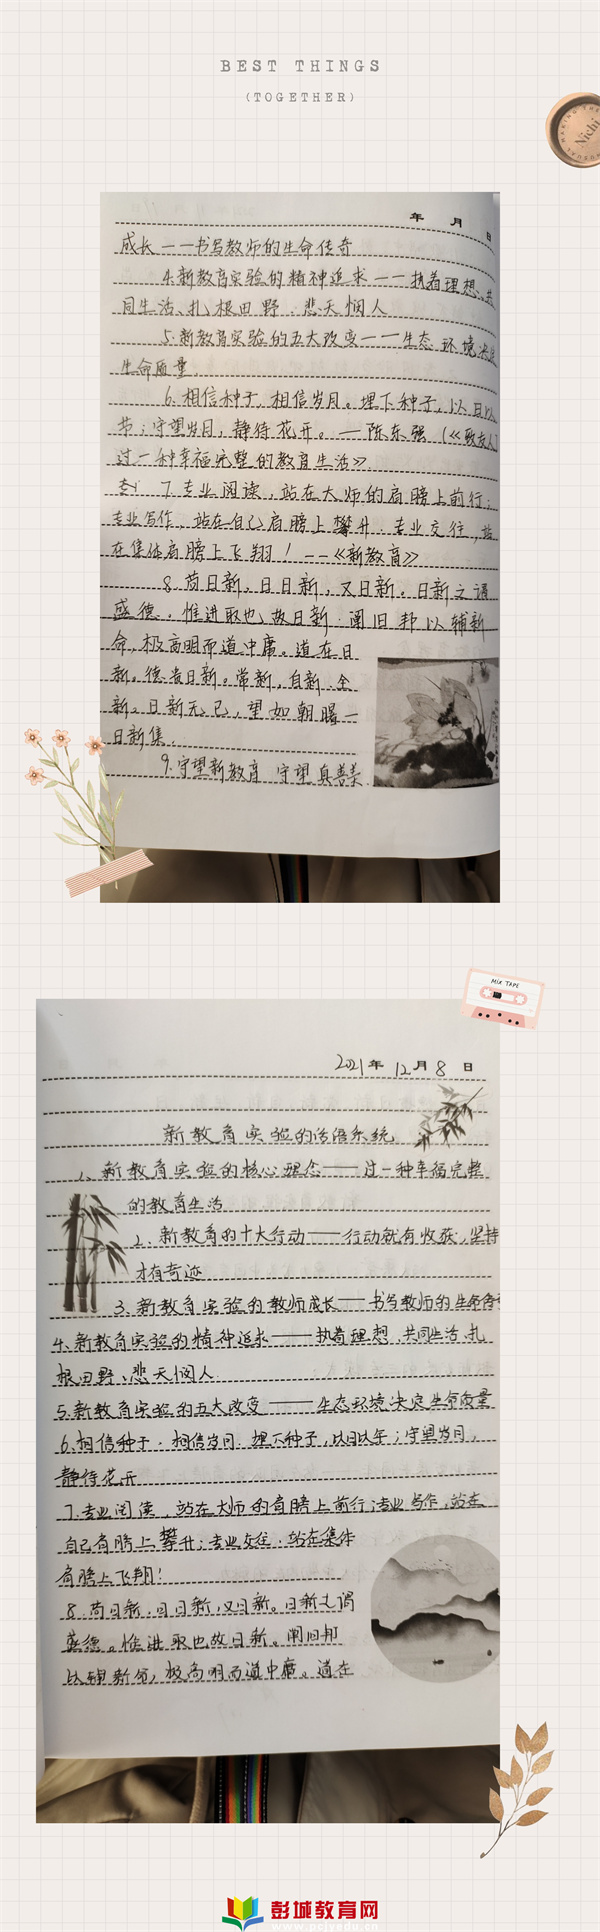 BEST THINGS
(TOGETHER)
Nichi
年 月 日
成长——书写教师的生命传奇
4.新教育实验的精神追求——执着理想、共
同生活、扎根田野、悲天悯人
5.新教育实验的五大改变——生态环境决定
生命质量.
6.相信种子,相信岁月。埋下种子,以日以
节;守望岁月,静待花开。—陈东强(《致友人》
过一种幸福完整的教育生活》
7.专业阅读,站在大师的肩膀上前行;
专业写作,站在自己肩膀上攀升,专业交往,站
在集体肩膀上飞翔!——《新教育》
8.苟日新,日日新,又日新。日新之谓
盛德.惟进取也故日新.阐旧邦以辅新
命,极高明而道中庸。道在日
新。德贵日新。常新,自新.全
新。日新无已,望如朝曙—
日新集.
9.守望新教育 守望真善美.
MIX TAPE
2021年12月8日
新教育实验的话语系统
1、新教育实验的核心理念——过一种幸福完整
的教育生活
2.新教育的十大行动——行动就有收获,坚持
才有奇迹
3.新教育实验的教师成长——书写教师的生命传奇
4.新教育实验的精神追求——执着理想、共同生活、扎
根田野、悲天悯人.
5.新教育实验的五大改变——生态环境决定生命质量
6.相信种子.相信岁月.埋下种子,以日以年;守望岁月,
静待花开
7.专业阅读,站在大师的肩膀上前行;专业写作,站在
自己肩膀上攀升;专业交往.站在集体
肩膀上飞翔!
8.苟日新,日日新,又日新。日新之谓
盛德。惟进取也故日新。阐旧邦
以辅新命,极高明而道中庸。道在
彭城教育网
www.pcjyedu.cn